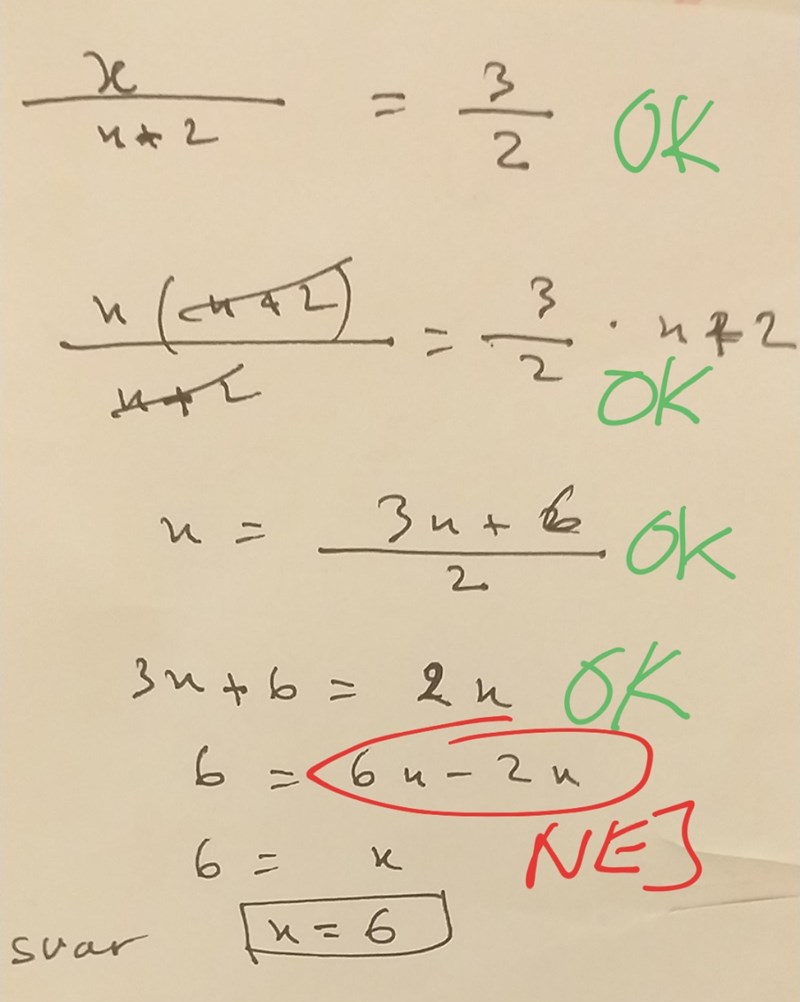 x/(x+2) = 3/2 OK
x(x+2)/(x+2) = 3/2 · x+2 OK
x = (3x+6)/2 OK
3x+6 = 2x OK
6 = 6x-2x NEJ
6 = x
svar x=6